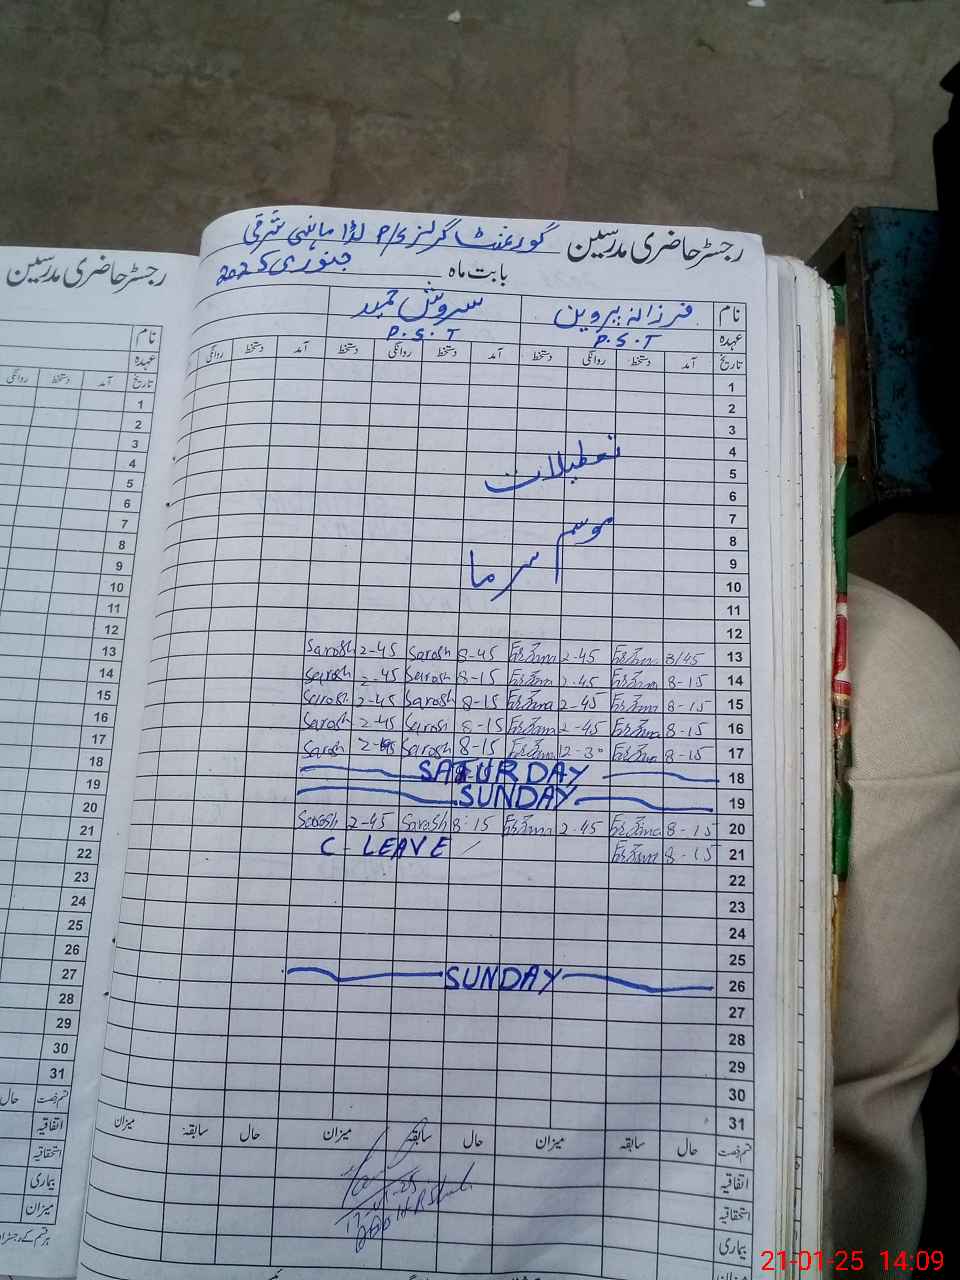 رجسٹر حاضری مدرسین گورنمنٹ گرلز P/S لڈا ماہنی شرقی
بابت ماہ جنوری 2025
نام فرزانہ پروین سروش حمید
عہدہ P.S.T P.S.T
تاریخ آمد دستخط روانگی دستخط آمد دستخط روانگی دستخط آمد دستخط روانگی
1
2
3
4
تعطیلات
5
6
7
8
موسم سرما
9
10
11
12
13 3/45 2-45 8-45 Sarosh 2-45 Sarosh
14 8-15 2-45 8-15 Sarosh 2-45 Sarosh
15 8-15 2-45 8-15 Sarosh 2-45 Sarosh
16 8-15 2-45 8-15 Sarosh 2-45 Sarosh
17 8-15 12-30 8-15 Sarosh 2-45 Sarosh
18 SATURDAY
19 SUNDAY
20 8-15 2-45 8:15 Sarosh 2-45 Sarosh
21 8-15 C-LEAVE
22
23
24
25
26 SUNDAY
27
28
29
30
31
قسم رخصت حال سابقہ میزان حال سابقہ میزان حال سابقہ میزان
اتفاقیہ
استحقاقیہ
بیماری
میزان
رجسٹر حاضری مدرسین
نام
عہدہ
تاریخ آمد دستخط روانگی
1
2
3
4
5
6
7
8
9
10
11
12
13
14
15
16
17
18
19
20
21
22
23
24
25
26
27
28
29
30
31
قسم رخصت حال
اتفاقیہ
استحقاقیہ
بیماری
میزان
21-01-25 14:09